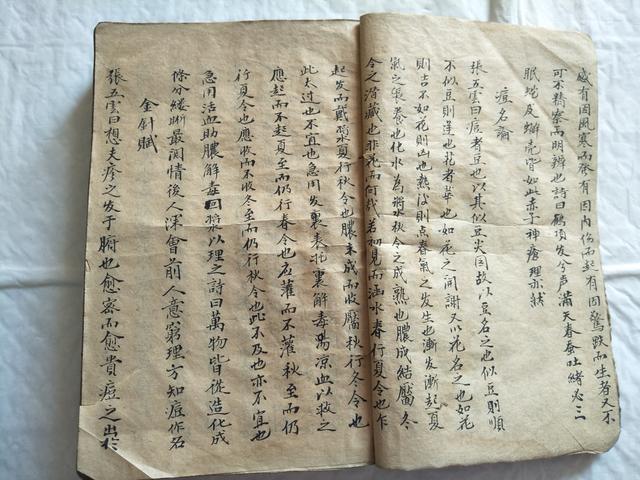 感有因風寒而發有因內傷而起有因驚跌而生者又不
可不精察而明辨也詩曰鸛項发兮声滿天春蚕吐緒必三
眠蜕及蝉壳皆如此赤子神瘡理亦然
痘名論
張五雲曰痘者豆也以其似豆尖园故以豆名之也似豆則順
不似豆則逆也花者華也如花之开謝又以花名之也如花
則吉不如花則凶也热法則点春氣之发生也漸发漸起夏
氣之張养也化水為漿秋令之成熟也膿成結靨冬
令之潛藏也非花而何哉若初見而涵水春行夏令也乍
起发而戴漿夏行秋令也膿未成而收靨秋行冬令也
此太过也不宜也急用发裏表托裏解毒踢凉血以救之
應起而不起夏至而仍行春令也应灌而不灌秋至而仍
行夏令也應收而不收冬至而仍行秋令也此不及也亦不宜也
急用活血助膿解毒回漿以理之詩曰萬物皆從造化成
條分缕晰最関情後人深會前人意窮理方知痘作名
金針賦
張五雲曰想夫疹之发于腑也愈密而愈貴痘之出於